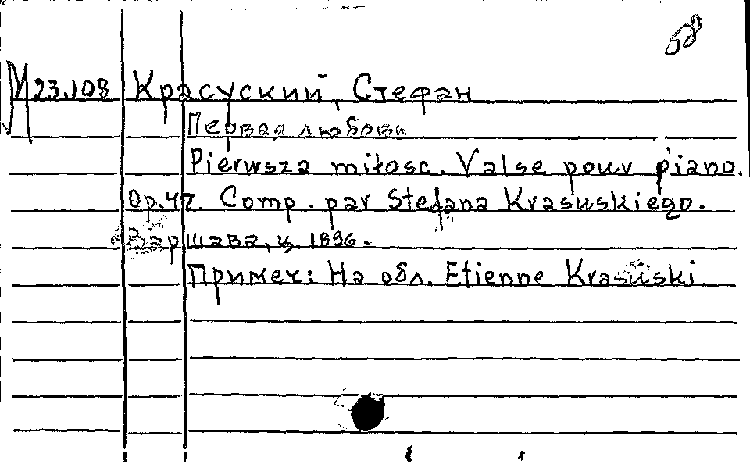 58
М23.108 Красуский, Стефан
Первая любовь
Pierwsza miłosc. Valse pour piano.
Op.47. Comp. par Stefana Krasuskiego.
Варшава, ц. 1896.
Примеч: На обл. Etienne Krasuski